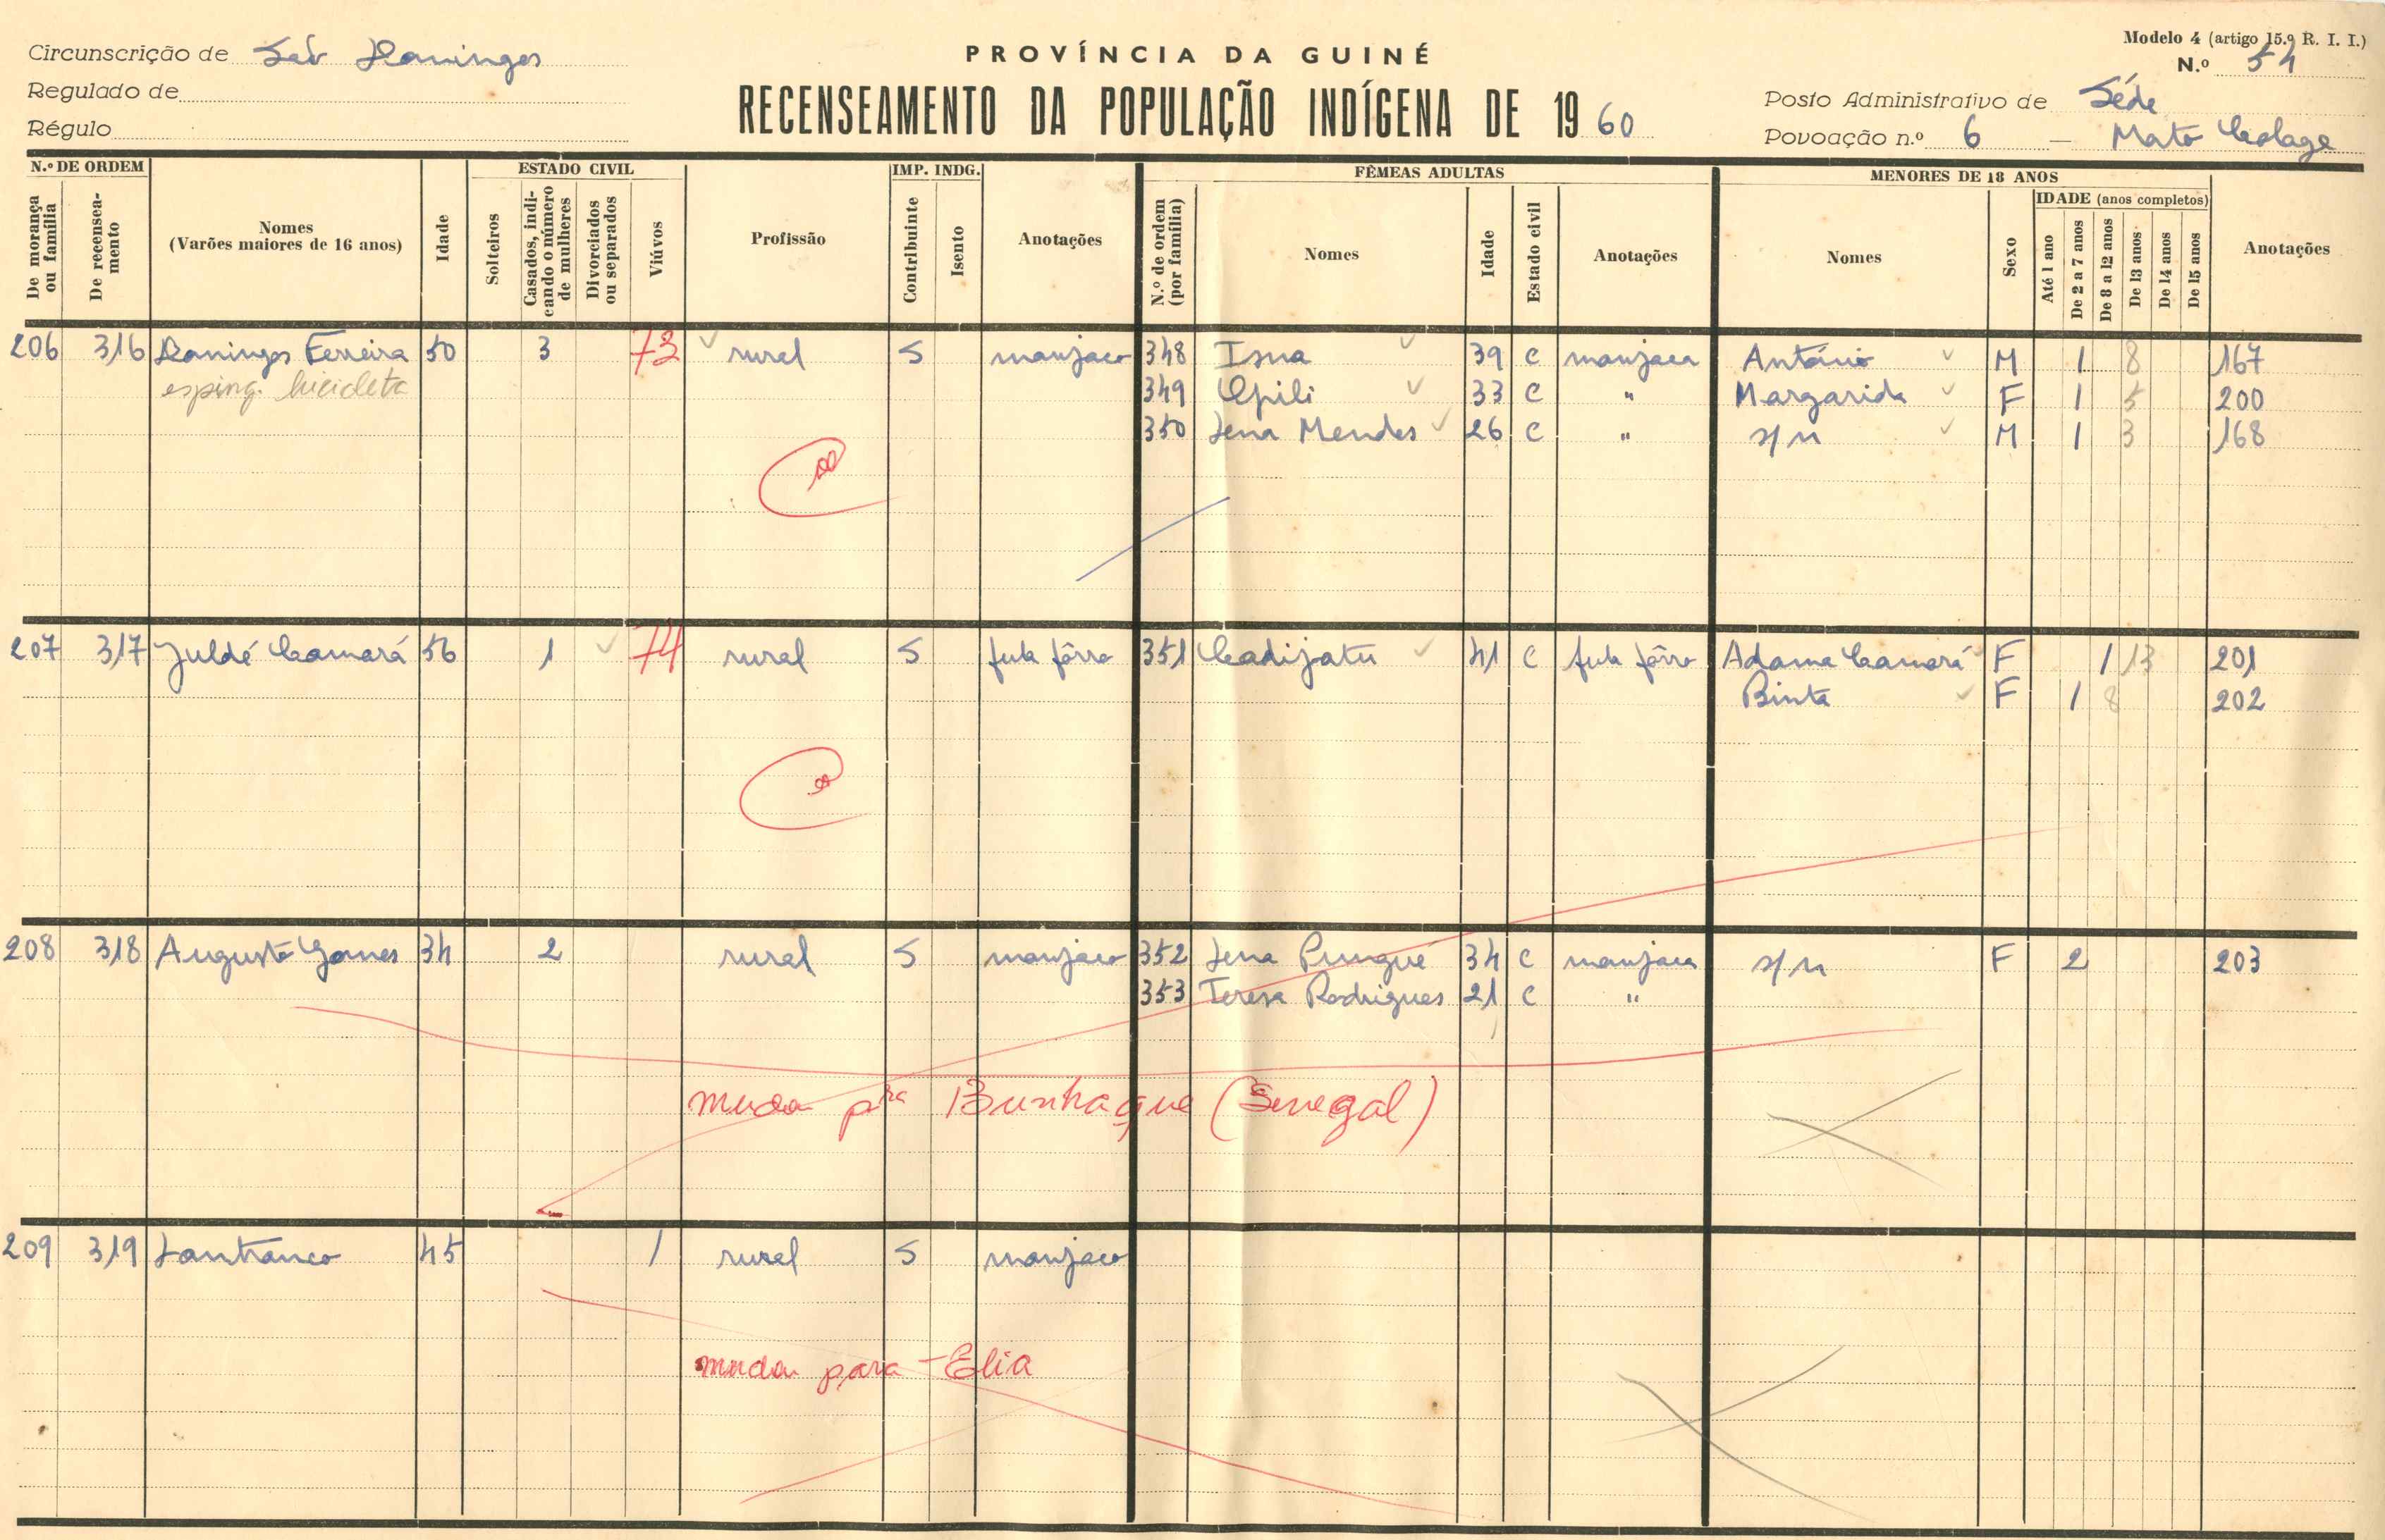 Circunscrição de São Domingos
Regulado de
Régulo
PROVÍNCIA DA GUINÉ
RECENSEAMENTO DA POPULAÇÃO INDÍGENA DE 1960
Modelo 4 (artigo 15.º R. I. I.)
N.º 54
Posto Administrativo de Séde
Povoação n.º 6 — Mato
N.º DE ORDEM
De morança ou família
De recenseamento
Nomes
(Varões maiores de 16 anos)
Idade
ESTADO CIVIL
Solteiros
Casados, indicando o número de mulheres
Divorciados ou separados
Viúvos
Profissão
IMP. INDG.
Contribuinte
Isento
Anotações
FÊMEAS ADULTAS
N.º de ordem (por família)
Nomes
Idade
Estado civil
Anotações
MENORES DE 18 ANOS
Nomes
Sexo
IDADE (anos completos)
Até 1 ano
De 2 a 7 anos
De 8 a 12 anos
De 13 anos
De 14 anos
De 15 anos
Anotações
206 316 Domingos Ferreira 50 3 73 rural S manjaco 348 Isna 39 C manjaca António M 1 8 167
esping. bicicleta 349 Opili 33 C " Margarida F 1 5 200
350 Jena Mendes 26 C " s/n M 1 3 168
207 317 Juldé Camará 56 1 74 rural S fula fôrro 351 Cadijatu 41 C fula fôrro Adama Camará F 1 13 201
Binta F 1 8 202
208 318 Augusto Gomes 34 2 rural S manjaco 352 Jena Pungué 34 C manjaca s/n F 2 203
353 Teresa Rodrigues 21 C "
muda pra Bunhaque (Senegal)
209 319 45 1 rural S manjaco
muda para - Elia